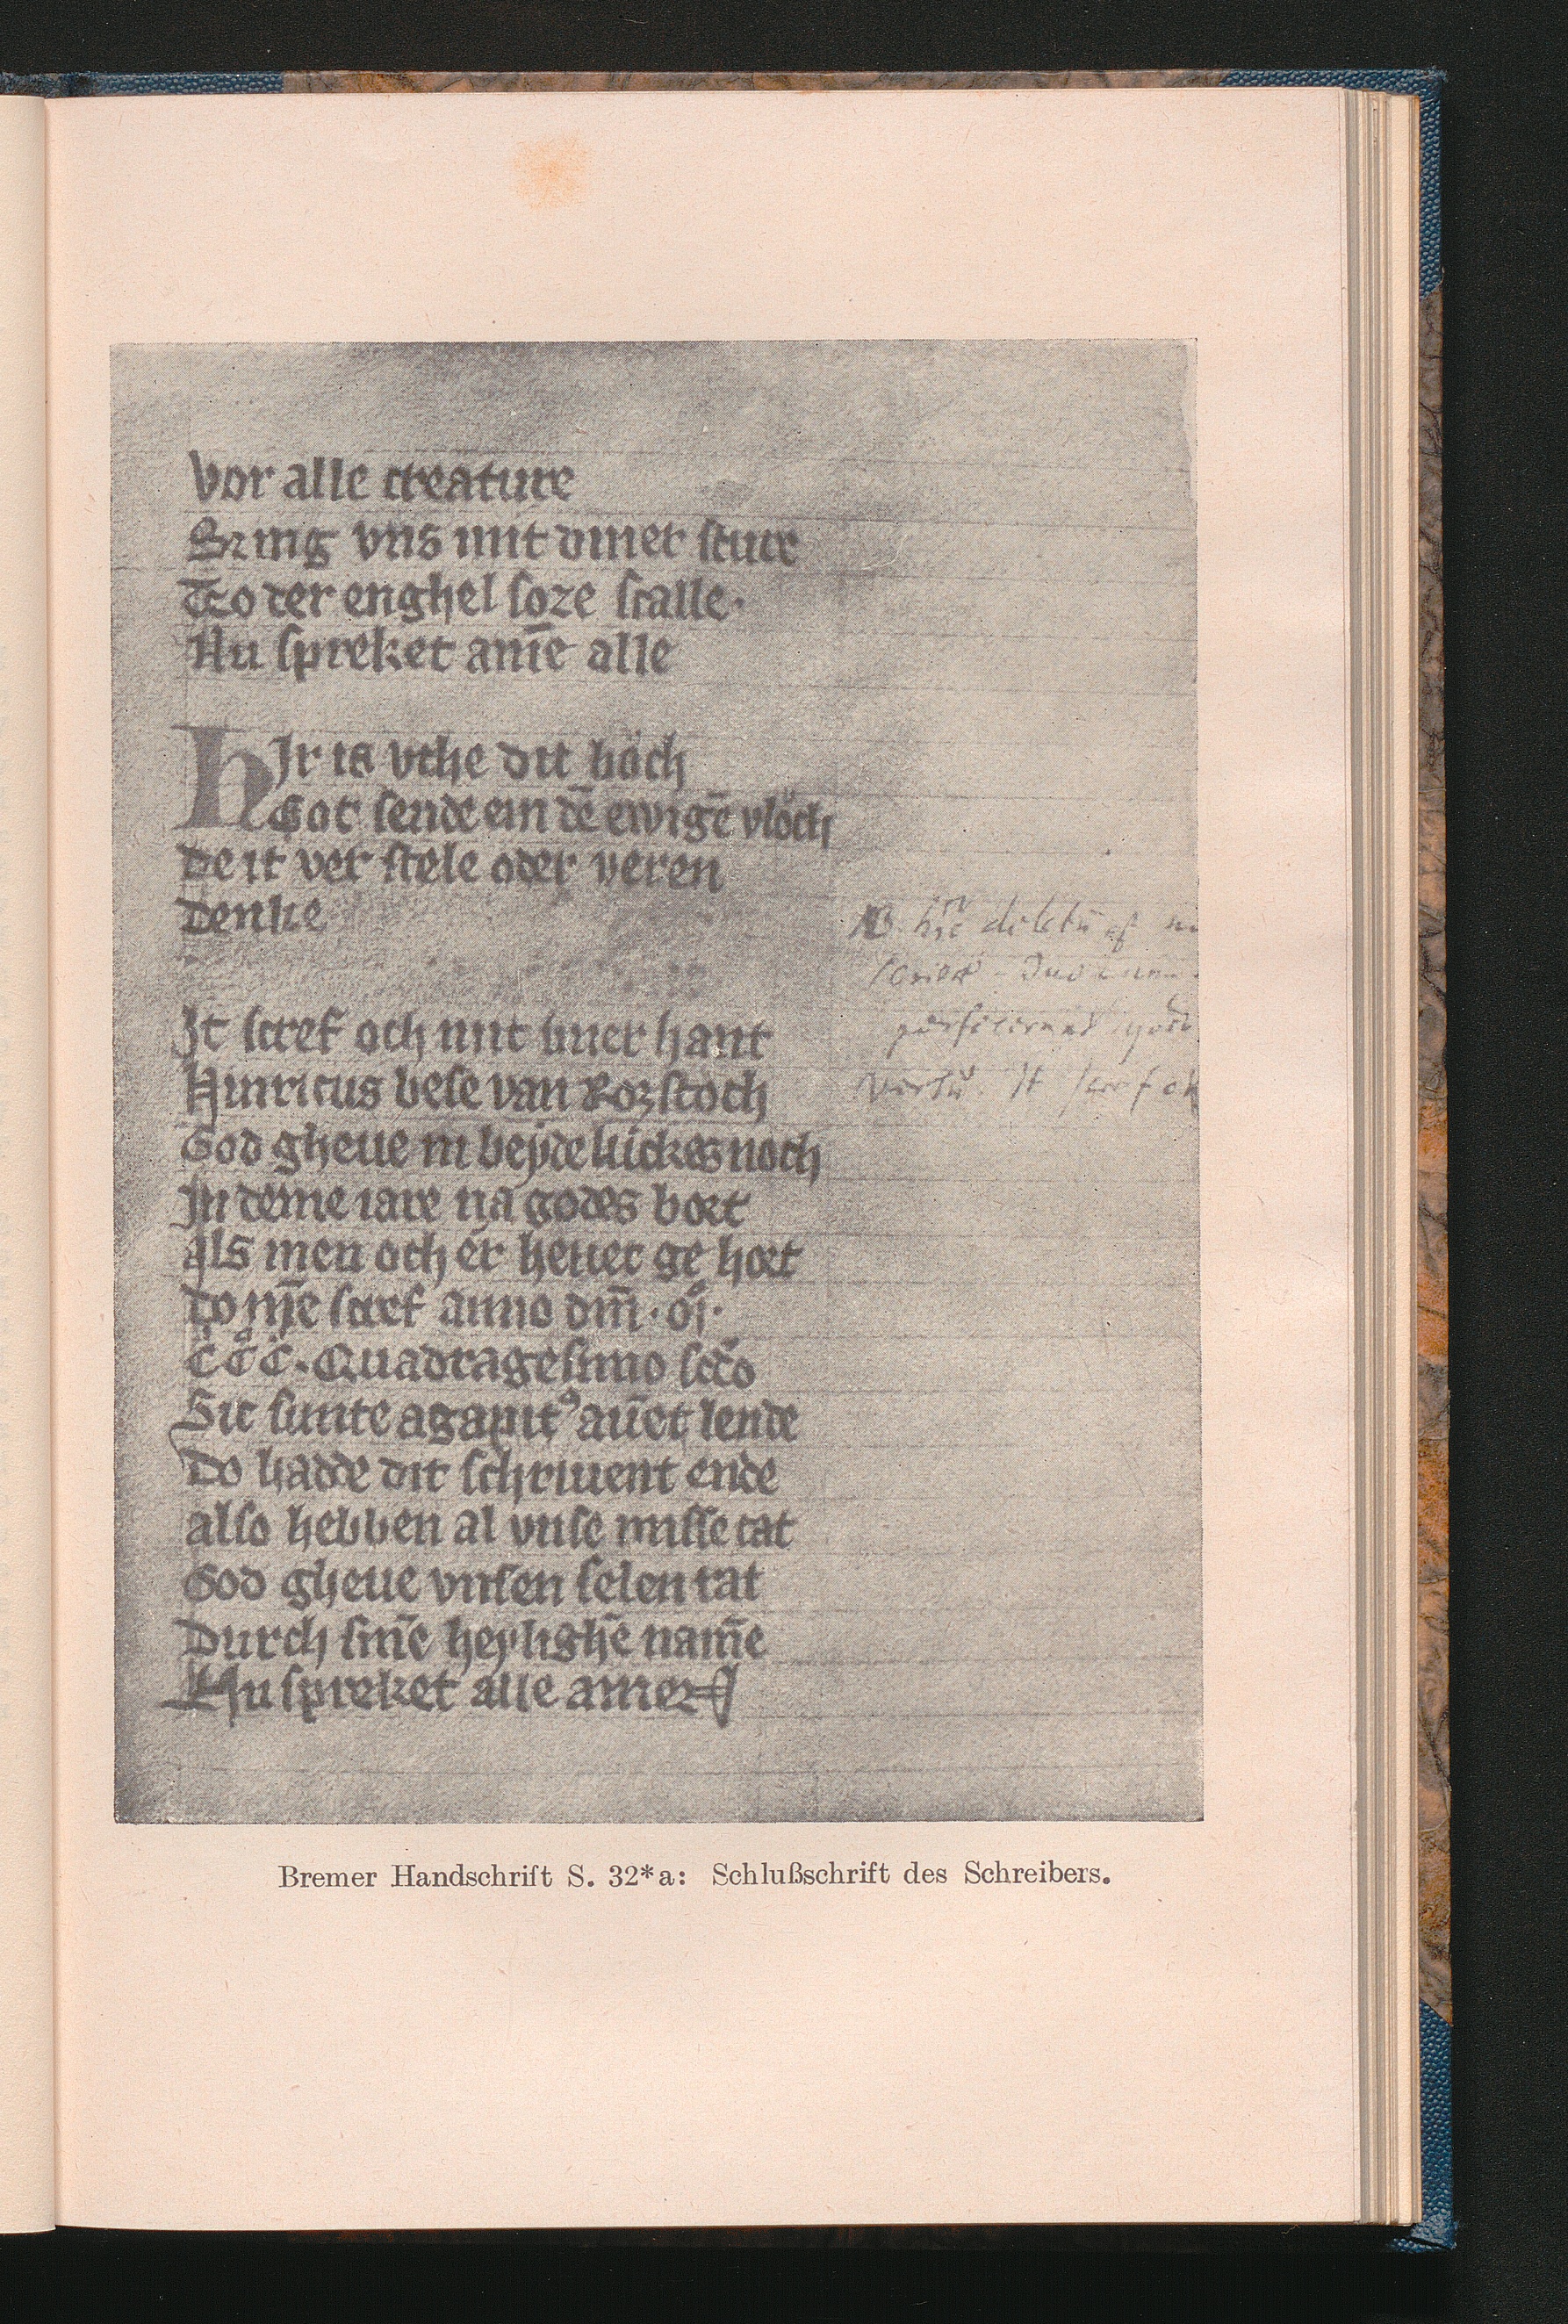 Vor alle creature
Bring vns mit diner sture
To der enghel soze scalle.
Nu spreket am̄e alle
HJr is vthe dit bo̊ch
Got sende ein dē ewigē vlo̊ch
De it ver stele oder veren
Denke
It scref och mit siner hant
Hinricus bese van Rozstoch
God gheue m beyde luckes noch
In deme iare na godes bort
als men och er heuet ge hort
Do m̄e scref anno dm̄. o̊j.
C̊ C̊ C̊. Quadragesimo scd̊o
Sit sunte agapitꝰ auēt lende
Do hadde dit schriuent ende
also hebben al vnse misse tat
God gheue vnsen selen rat
Durch sin̄e heylighē nam̄e
Nu spreket alle amen
NB. hic
It scref och
Bremer Handschrift S. 32*a: Schlußschrift des Schreibers.